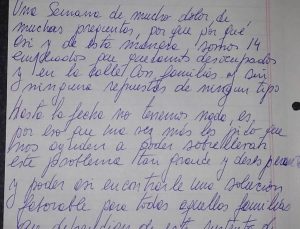 Una Semana de mucho dolor, de
muchas preguntas, por que por qué
así y de esta manera, somos 14
empleados que quedamos desocupados
y en la calle! Con familias, y sin
ninguna repuestas de ningun tipo
Hasta la fecha no tenemos nada, es
por eso que una vez más les pido que
nos ayuden a poder sobrellevar
este problema tan grande y
y poder asi encontrarle una solución
favorable para todas aquellas familias
que de este